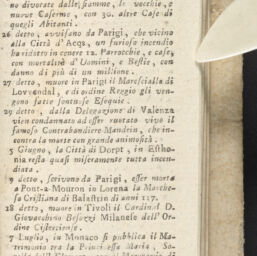 no divorate dalle fiamme, le vecchie, e
nuove Caserme, con 30. altre Case di
quegli Abitanti.
26 detto, avvisano da Parigi, che vicino
alla Città d'Acqs, un furioso incendio
ha ridotto in cenere 12. Parrocchie, e case,
con mortalità d'Uomini, e Bestie, con
danno di più di un milione.
27 detto, muore in Parigi il Marescialla di
Lowendal, e di ordine Reggio gli ven-
gono fatte sontuose Esequie.
29 detto, dalla Delegazione di Valenza
vien condannato ad esser ruotato vivo il
famoso Contrabandiere Mandrin, che in-
contra la morte con grande animosità.
5 Giugno, la Città di Dorpt, in Estho-
nia resta quasi miseramente tutta incen-
diata.
9 detto, scrivono da Parigi, esser morta
a Pont-a-Mouron in Lorena la Marche-
sa Cristiana di Balastrin di anni 117.
28 detto, muore in Tivoli il Cardinal D.
Giovacchino Besozzi Milanese dell'Or-
dine Cisterciense.
7 Luglio, in Monaco si pubblica il Ma-
trimonio tra la